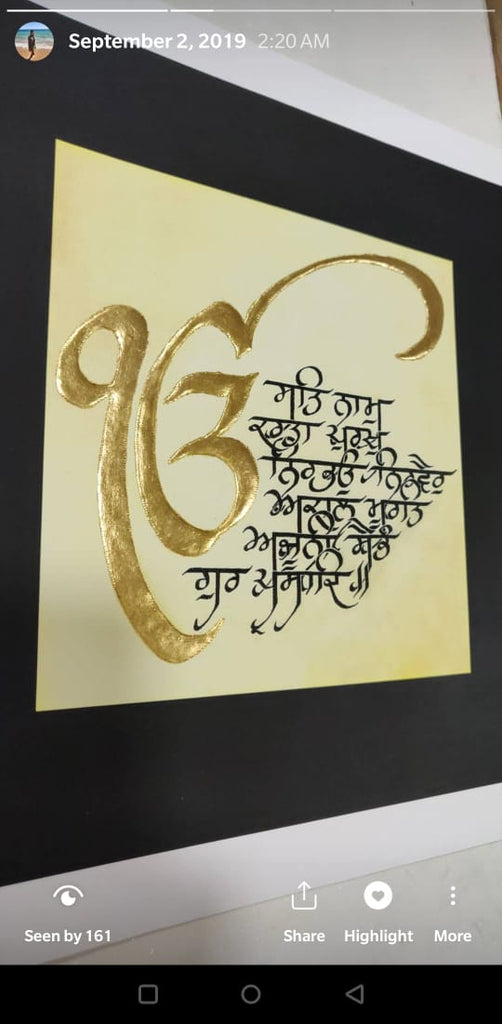 September 2, 2019 2:20 AM
ੴ
ਸਤਿ ਨਾਮੁ
ਕਰਤਾ ਪੁਰਖੁ
ਨਿਰਭਉ ਨਿਰਵੈਰੁ
ਅਕਾਲ ਮੂਰਤਿ
ਅਜੂਨੀ ਸੈਭੰ
ਗੁਰ ਪ੍ਰਸਾਦਿ॥
Seen by 161 Share Highlight More